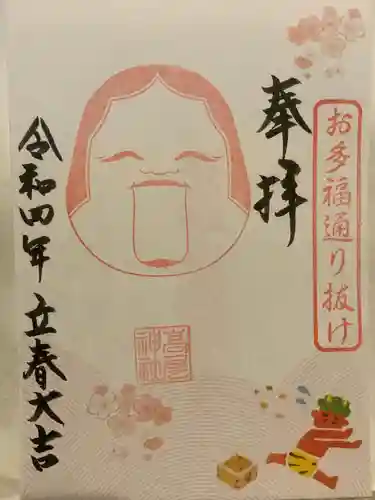 お多福通り抜け
奉拝
高尾神社
令和四年 立春大吉